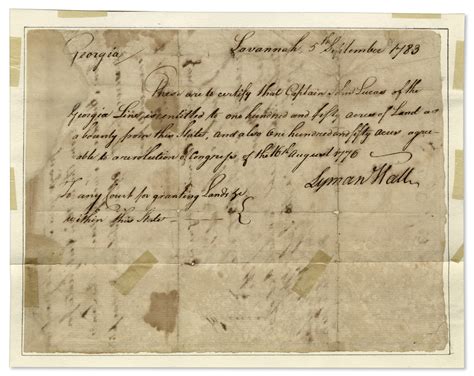 Georgia Savannah 5th September 1783
These are to certify that Captain John Lucas of the
Georgia Line is entitled to one hundred and fifty acres of Land as
a bounty from this State, and also one hundred and fifty acres agree
able to a resolution of Congress of the 16th August 1776
Lyman Hall
To any Court for granting Lands &c
within this State